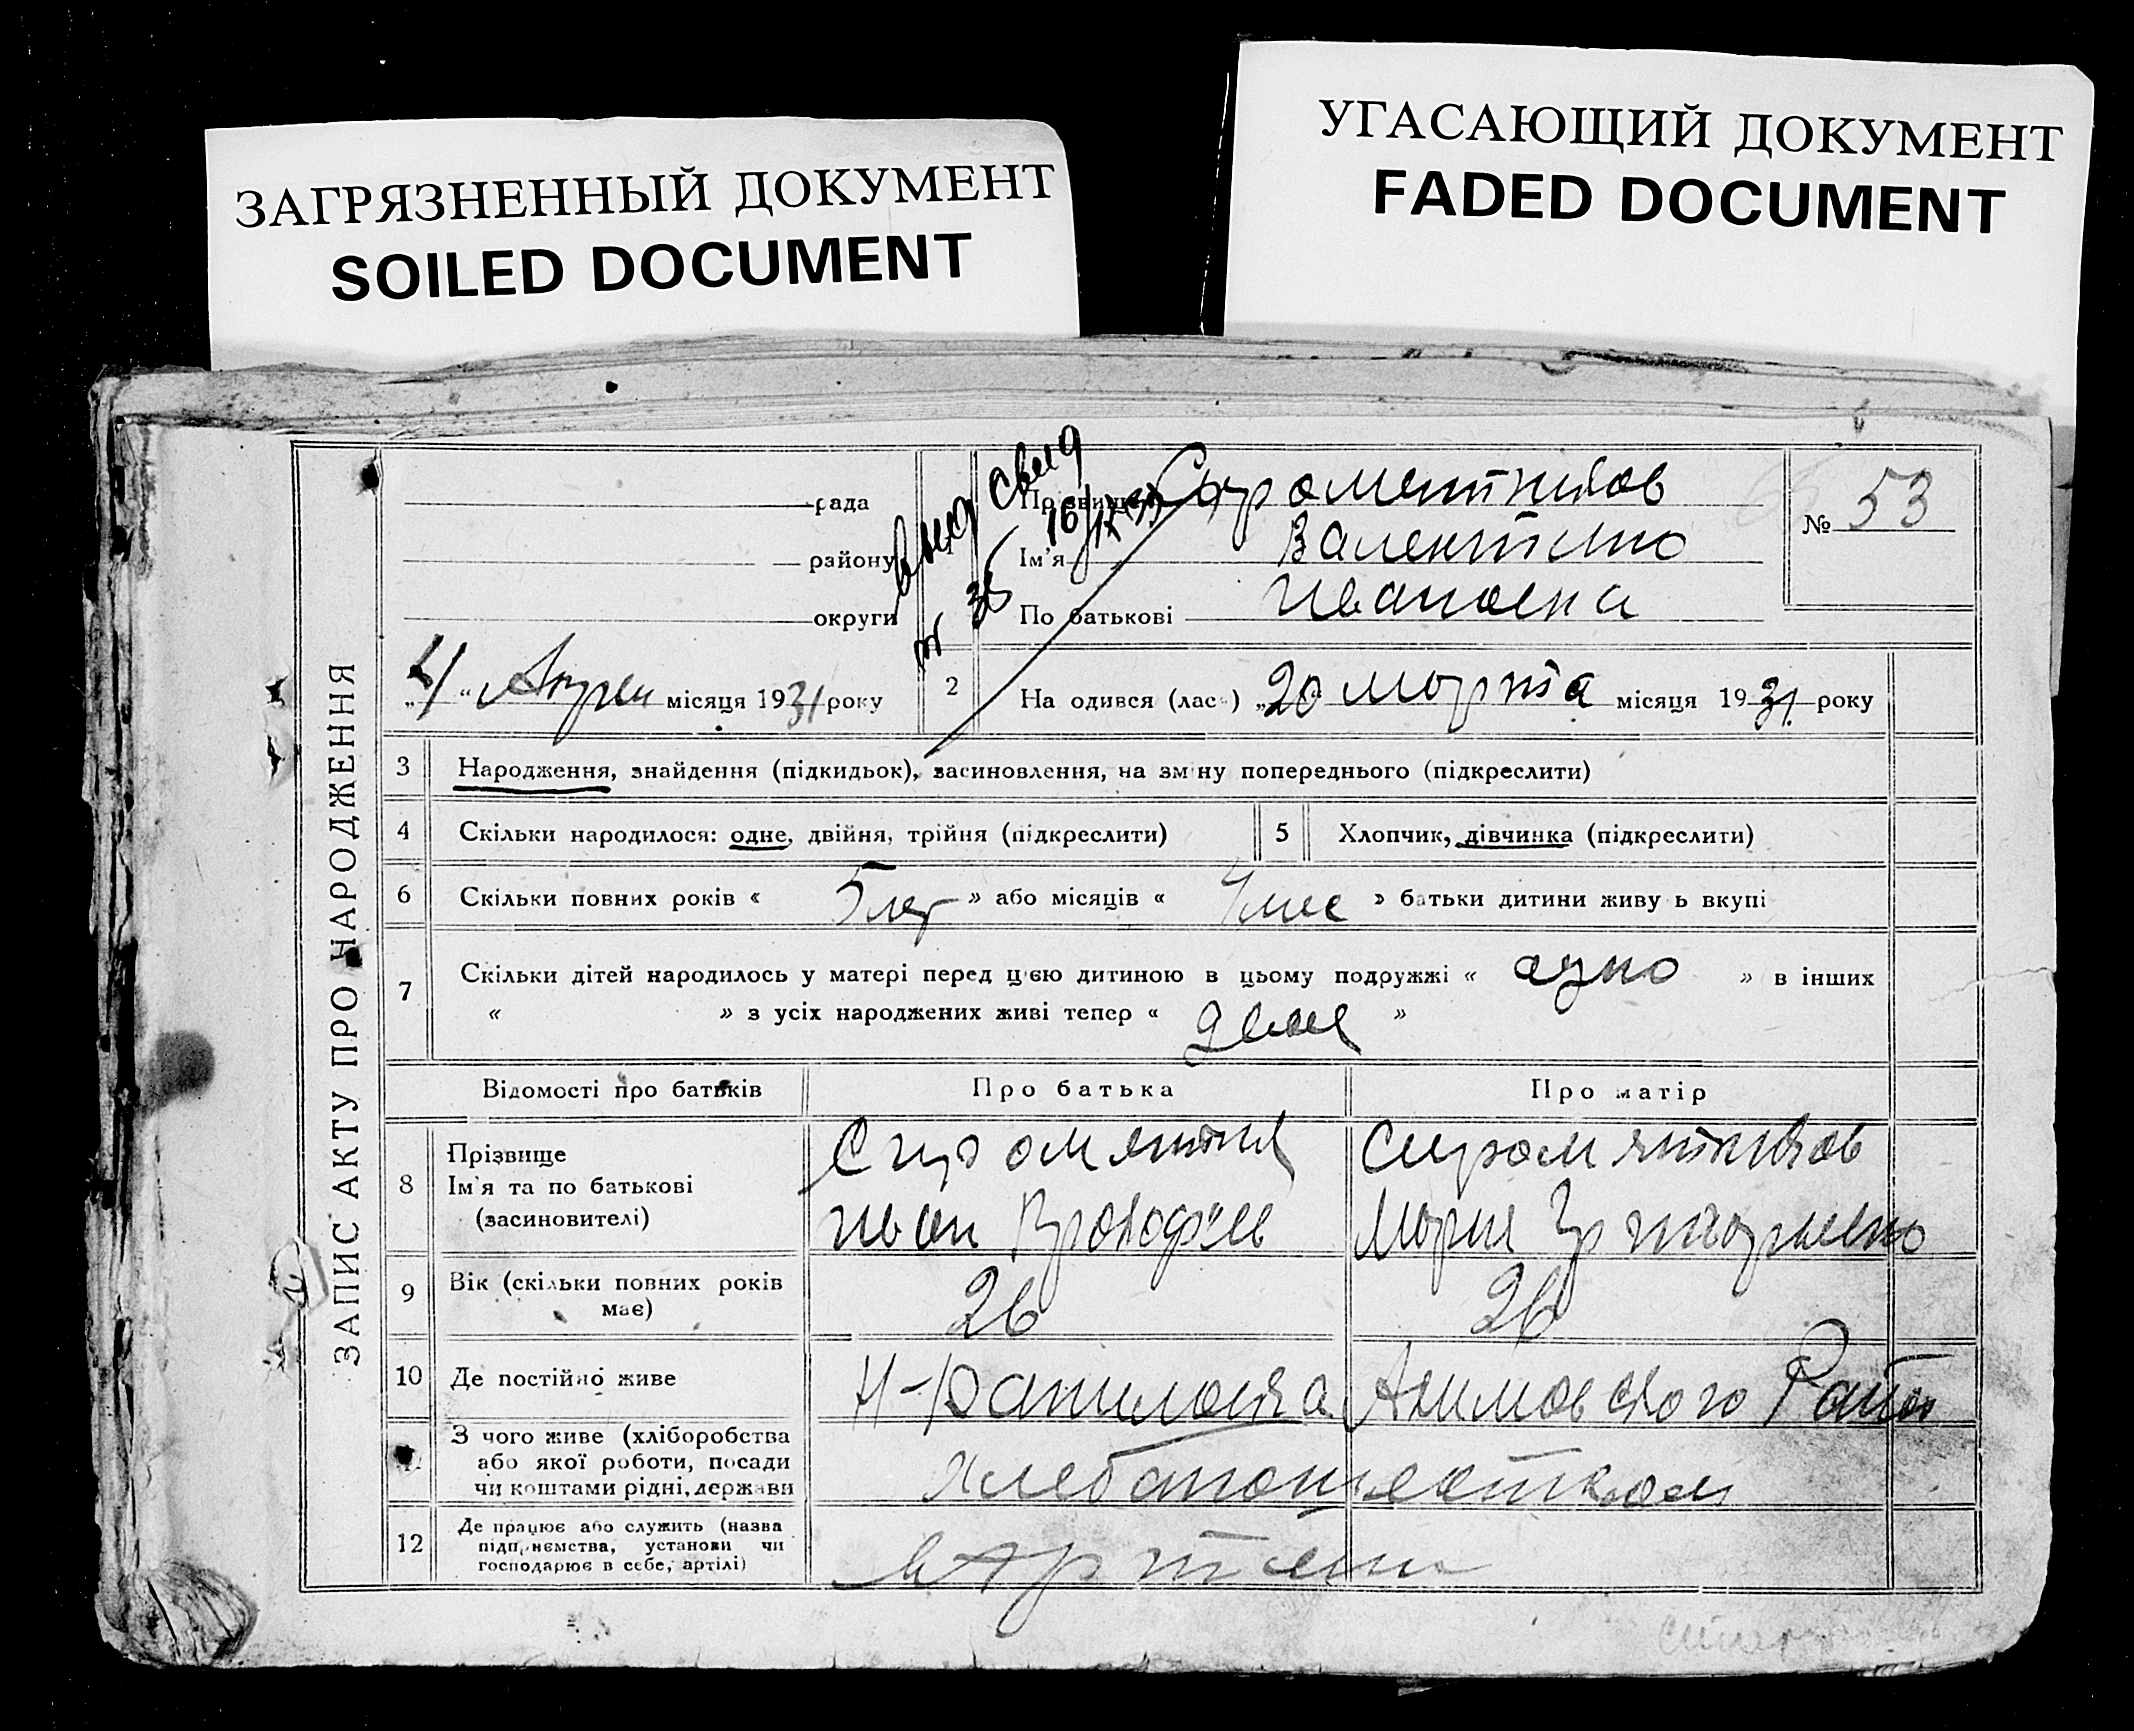 ЗАГРЯЗНЕННЫЙ ДОКУМЕНТ
SOILED DOCUMENT
УГАСАЮЩИЙ ДОКУМЕНТ
FADED DOCUMENT
ЗАПИС АКТУ ПРО НАРОДЖЕННЯ
рада
району
округи
выд свид
№ 35
Прізвище Сыроментников
Ім'я Валентина
По батькові Ивановна
№ 53
„4“ Апрел місяця 1931 року
2 На одився (лась) „20 марта місяця 1931 року
3 Народження, знайдення (підкидьок), засиновлення, на зміну попереднього (підкреслити)
4 Скільки народилося: одне, двійня, трійня (підкреслити)
5 Хлопчик, дівчинка (підкреслити)
6 Скільки повних років « 5 лет » або місяців « 4 мес » батьки дитини живу ь вкупі
7 Скільки дітей народилось у матері перед цією дитиною в цьому подружжі « одно » в інших
« » з усіх народжених живі тепер « двое »
Відомості про батьків Про батька Про матір
8 Прізвище
Ім'я та по батькові
(засиновителі)
Сиромятник
Иван Прокофъев
Сиромятников
Мария Григорьевно
9 Вік (скільки повних років
має)
26 26
10 Де постійно живе Н-Даниловка Акимовского Район
З чого живе (хліборобства
або якої роботи, посади
чи коштами рідні, держави
хлебапошеством
12 Де працює або служить (назва
підприємства, установи чи
господарює в себе, артілі)
в Артели